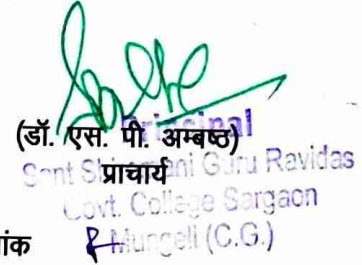 (डॉ. एस. पी. अम्बष्ठ)
Principal
प्राचार्य
Sant Shiromani Guru Ravidas
Govt. College Sargaon
Mungeli (C.G.)
ांक